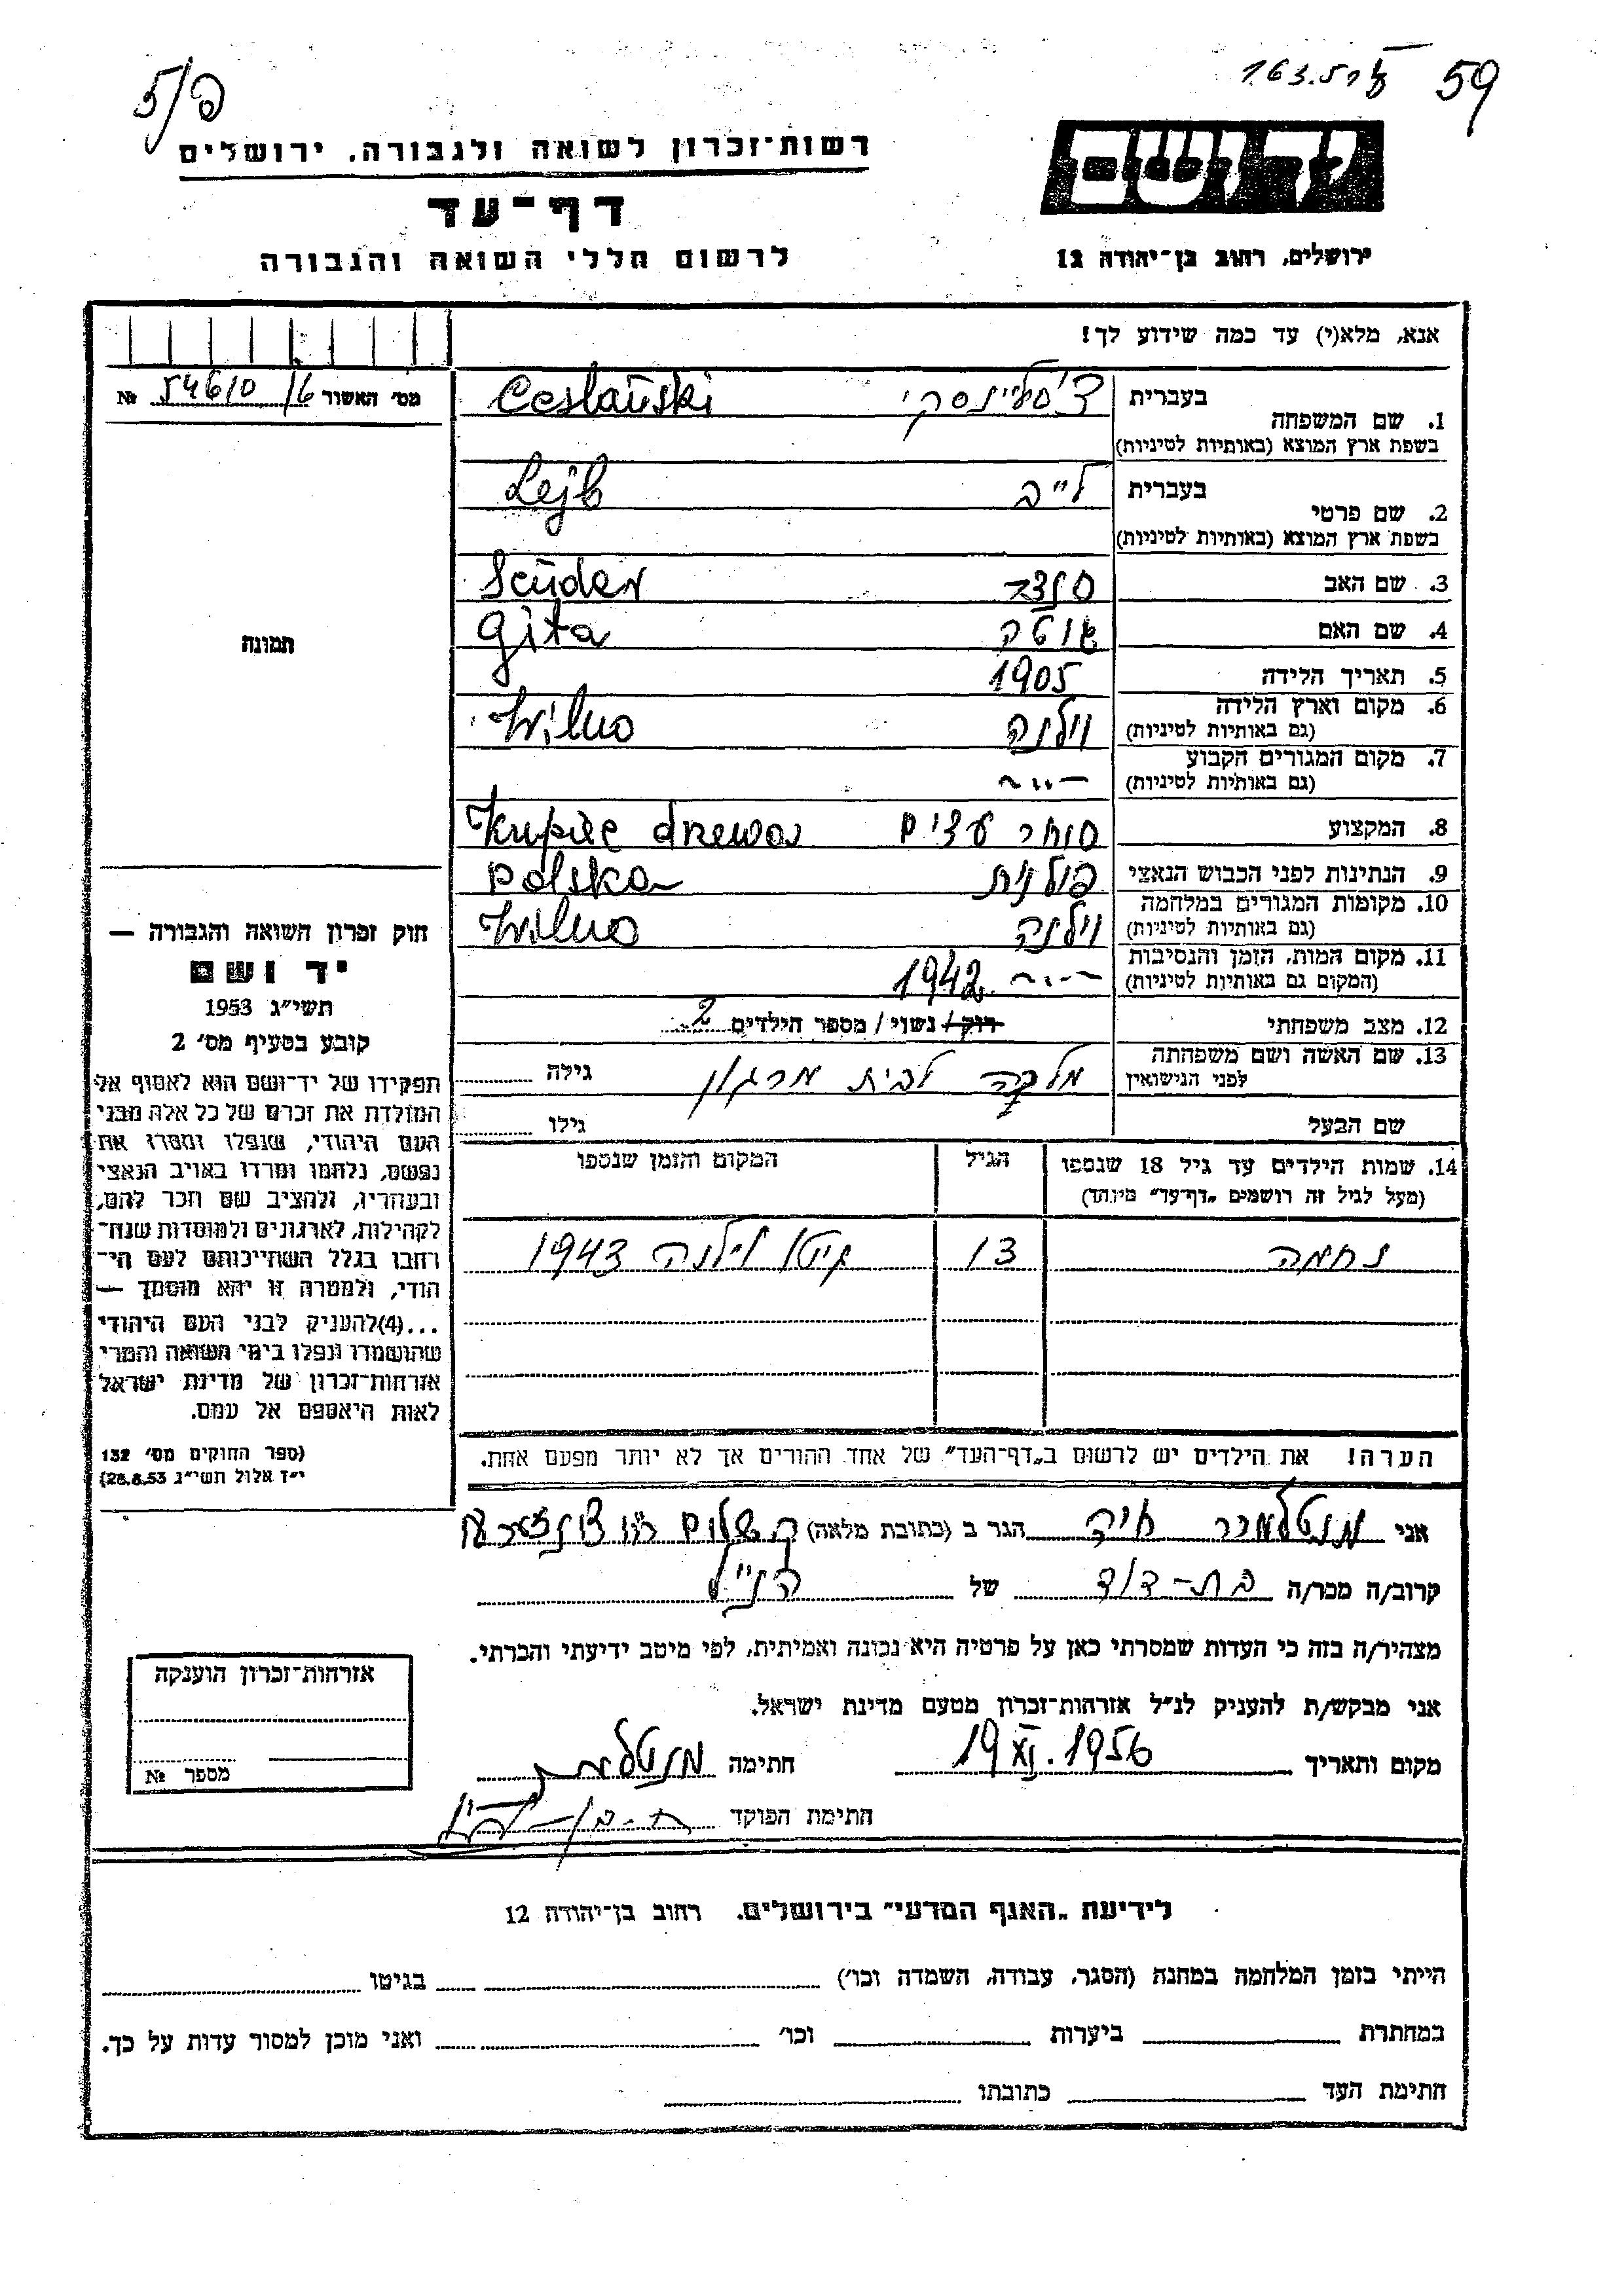 5/פ
59
רשות־זכרון לשואה ולגבורה, ירושלים
דף־עד
לרשום חללי השואה והגבורה
יד ושם
ירושלים, רחוב בן־יהודה 12
אנא, מלא(י) עד כמה שידוע לך!
מס׳ האשור 54610/6 №
1. שם המשפחה
בעברית
בשפת ארץ המוצא (באותיות לטיניות)
Ceslański
2. שם פרטי
בעברית לייב
בשפת ארץ המוצא (באותיות לטיניות)
Lejb
3. שם האב סנדר Sender
4. שם האם גיטה Gita
5. תאריך הלידה 1905
6. מקום וארץ הלידה
(גם באותיות לטיניות)
וילנה Wilno
7. מקום המגורים הקבוע
(גם באותיות לטיניות)
~ ״ ~
8. המקצוע סוחר עצים Kupiec drzewa
9. הנתינות לפני הכבוש הנאצי פולנית Polska
10. מקומות המגורים במלחמה
(גם באותיות לטיניות)
וילנה Wilno
11. מקום המות, הזמן והנסיבות
(המקום גם באותיות לטיניות)
~ ״ ~ 1942
12. מצב משפחתי רוק/ נשוי/ מספר הילדים 2
13. שם האשה ושם משפחתה
לפני הנישואין
מלכה לבית גילה
שם הבעל גילו
14. שמות הילדים עד גיל 18 שנספו
(מעל לגיל זה רושמים „דף־עד״ מיוחד)
הגיל
המקום והזמן שנספו
נחמה 13 גיטו וילנה 1943
הערה! את הילדים יש לרשום ב„דף־העד״ של אחד ההורים אך לא יותר מפעם אחת.
תמונה
חוק זכרון השואה והגבורה —
יד ושם
תשי״ג 1953
קובע בסעיף מס׳ 2
תפקידו של יד־ושם הוא לאסוף אל
המולדת את זכרם של כל אלה מבני
העם היהודי, שנפלו ומסרו את
נפשם, נלחמו ומרדו באויב הנאצי
ובעוזריו, ולהציב שם וזכר להם,
לקהילות, לארגונים ולמוסדות שנח־
רבו בגלל השתייכותם לעם הי־
הודי, ולמטרה זו יהא מוסמך —
...(4)להעניק לבני העם היהודי
שהושמדו ונפלו בימי השואה והמרי
אזרחות־זכרון של מדינת ישראל
לאות היאספם אל עמם.
(ספר החוקים מס׳ 132
י״ז אלול תשי״ג 28.8.53)
אני חיה הגר ב (כתובת מלאה)
קרוב/ה מכר/ה בת-דוד של הנ״ל
מצהיר/ה בזה כי העדות שמסרתי כאן על פרטיה היא נכונה ואמיתית, לפי מיטב ידיעתי והכרתי.
אני מבקש/ת להעניק לנ״ל אזרחות־זכרון מטעם מדינת ישראל.
מקום ותאריך 19 XI. 1956 חתימה
חתימת הפוקד
אזרחות־זכרון הוענקה
מספר №
לידיעת „האגף המדעי״ בירושלים, רחוב בן־יהודה 12
הייתי בזמן המלחמה במחנה (הסגר, עבודה, השמדה וכו׳) בגיטו
במחתרת ביערות וכו׳ ואני מוכן למסור עדות על כך.
חתימת העד כתובתו